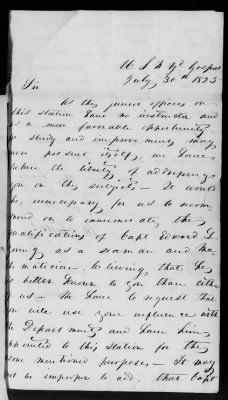 U.S. N. Yd. Gosport
July 30th 1825
Sir
As the junior officers on
this station have no instructor and
as a more favorable opportunity
to study and improvements may
never present itself, we have
taken the liberty of addressing
you on this subject — It would
be unnecessary for us to recom
mend or to ennumerate, the
qualifications of Capt Edward
Young as a seaman and ma
thematician, believing that he
is better known to you than either
of us — We have to request that
you will use your influence with
the Department and have him
appointed to this station for the
above mentioned purposes — It may
not be improper to add, that Capt